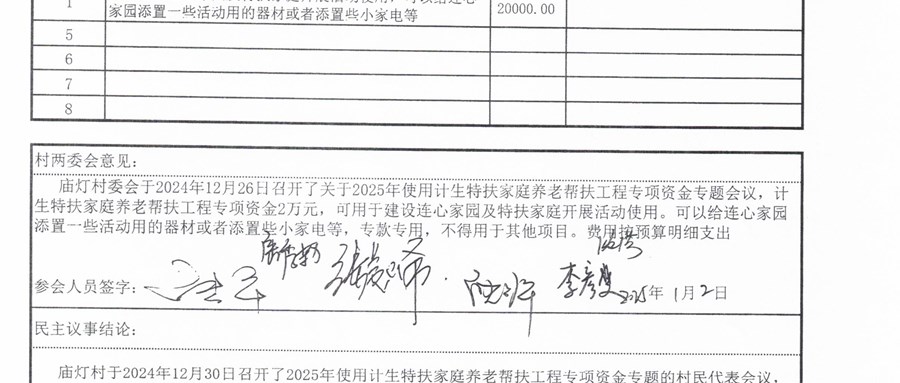 1
家园添置一些活动用的器材或者添置些小家电等
20000.00
5
6
7
8
村两委会意见:
庙灯村委会于2024年12月26日召开了关于2025年使用计生特扶家庭养老帮扶工程专项资金专题会议，计
生特扶家庭养老帮扶工程专项资金2万元，可用于建设连心家园及特扶家庭开展活动使用。可以给连心家园
添置一些活动用的器材或者添置些小家电等，专款专用，不得用于其他项目。费用按预算明细支出
参会人员签字:
2025年 1月2日
民主议事结论:
庙灯村于2024年12月30日召开了2025年使用计生特扶家庭养老帮扶工程专项资金专题的村民代表会议，